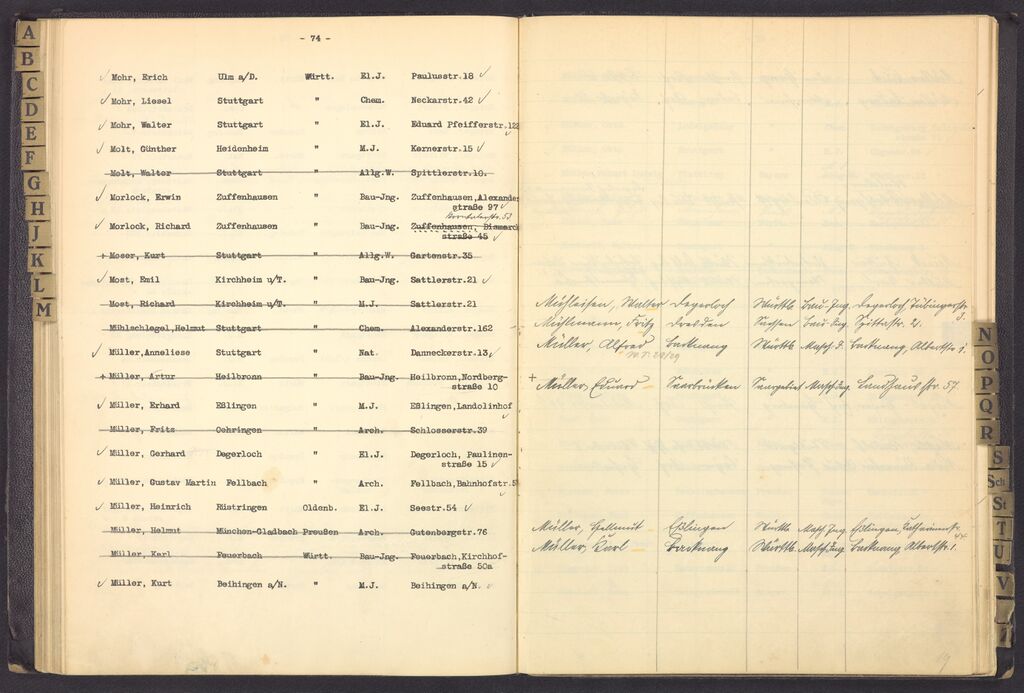 - 74 -
Mohr, Erich Ulm a/D. Württ. El.J. Paulusstr.18
Mohr, Liesel Stuttgart " Chem. Neckarstr.42
Mohr, Walter Stuttgart " El.J. Eduard Pfeifferstr.122
Molt, Günther Heidenheim " M.J. Kernerstr.15
Molt, Walter Stuttgart " Allg.W. Spittlerstr.10.
Morlock, Erwin Zuffenhausen " Bau-Jng. Zuffenhausen,Alexander
straße 97
Morlock, Richard Zuffenhausen " Bau-Jng. Zuffenhausen, Bismarck
straße 45
+ Moser, Kurt Stuttgart " Allg.W. Gartenstr.35
Most, Emil Kirchheim u/T. " Bau-Jng. Sattlerstr.21
Most, Richard Kirchheim u/T. " M.J. Sattlerstr.21
Mühlschlegel,Helmut Stuttgart " Chem. Alexanderstr.162
Müller,Anneliese Stuttgart " Nat. Danneckerstr.13
+ Müller, Artur Heilbronn " Bau-Jng. Heilbronn,Nordberg-
straße 10
Müller, Erhard Eßlingen " M.J. Eßlingen,Landolinhof
Müller, Fritz Oehringen " Arch. Schlosserstr.39
Müller, Gerhard Degerloch " El.J. Degerloch, Paulinen-
straße 15
Müller, Gustav Martin Fellbach " Arch. Fellbach,Bahnhofstr.5
Müller, Heinrich Rüstringen Oldenb. El.J. Seestr.54
Müller, Helmut München-Gladbach Preußen Arch. Gutenbergstr.76
Müller, Karl Feuerbach Württ. Bau-Jng. Feuerbach,Kirchhof-
straße 50a
Müller, Kurt Beihingen a/N. " M.J. Beihingen a/N.
Mühleisen, Walter Degerloch Württb Bau-Ing. Degerloch Tübingerstr
3.
Mühlmann, Fritz Dresden Sachsen Bau-Ing. Spittastr. 2.
Müller, Alfred Backnang Württb Masch.I. Backnang, Albertstr. 1.
W.S. 28/29
+ Müller, Eduard Saarbrücken Saargebiet Masch Ing. Landhausstr. 57
Müller, Hellmut Eßlingen Württb Masch Ing. Eßlingen, Katharinenstr
44
Müller, Karl Backnang Württb. Masch.Ing Backnang Albertstr. 1.
A
B
C
D
E
F
G
H
J
K
L
M
N
O
P
Q
R
S
Sch
St
T
U
V